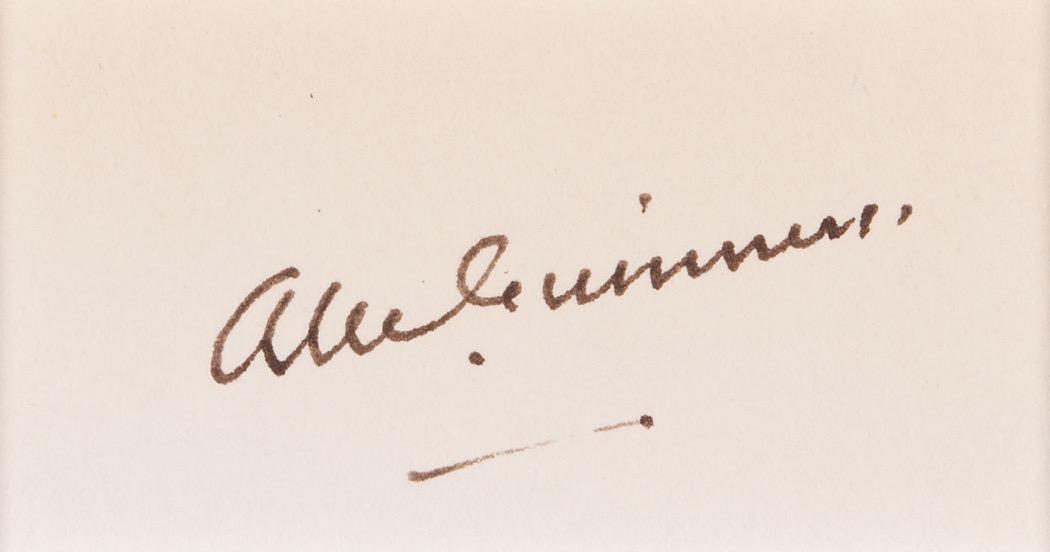 Alec Guinness.